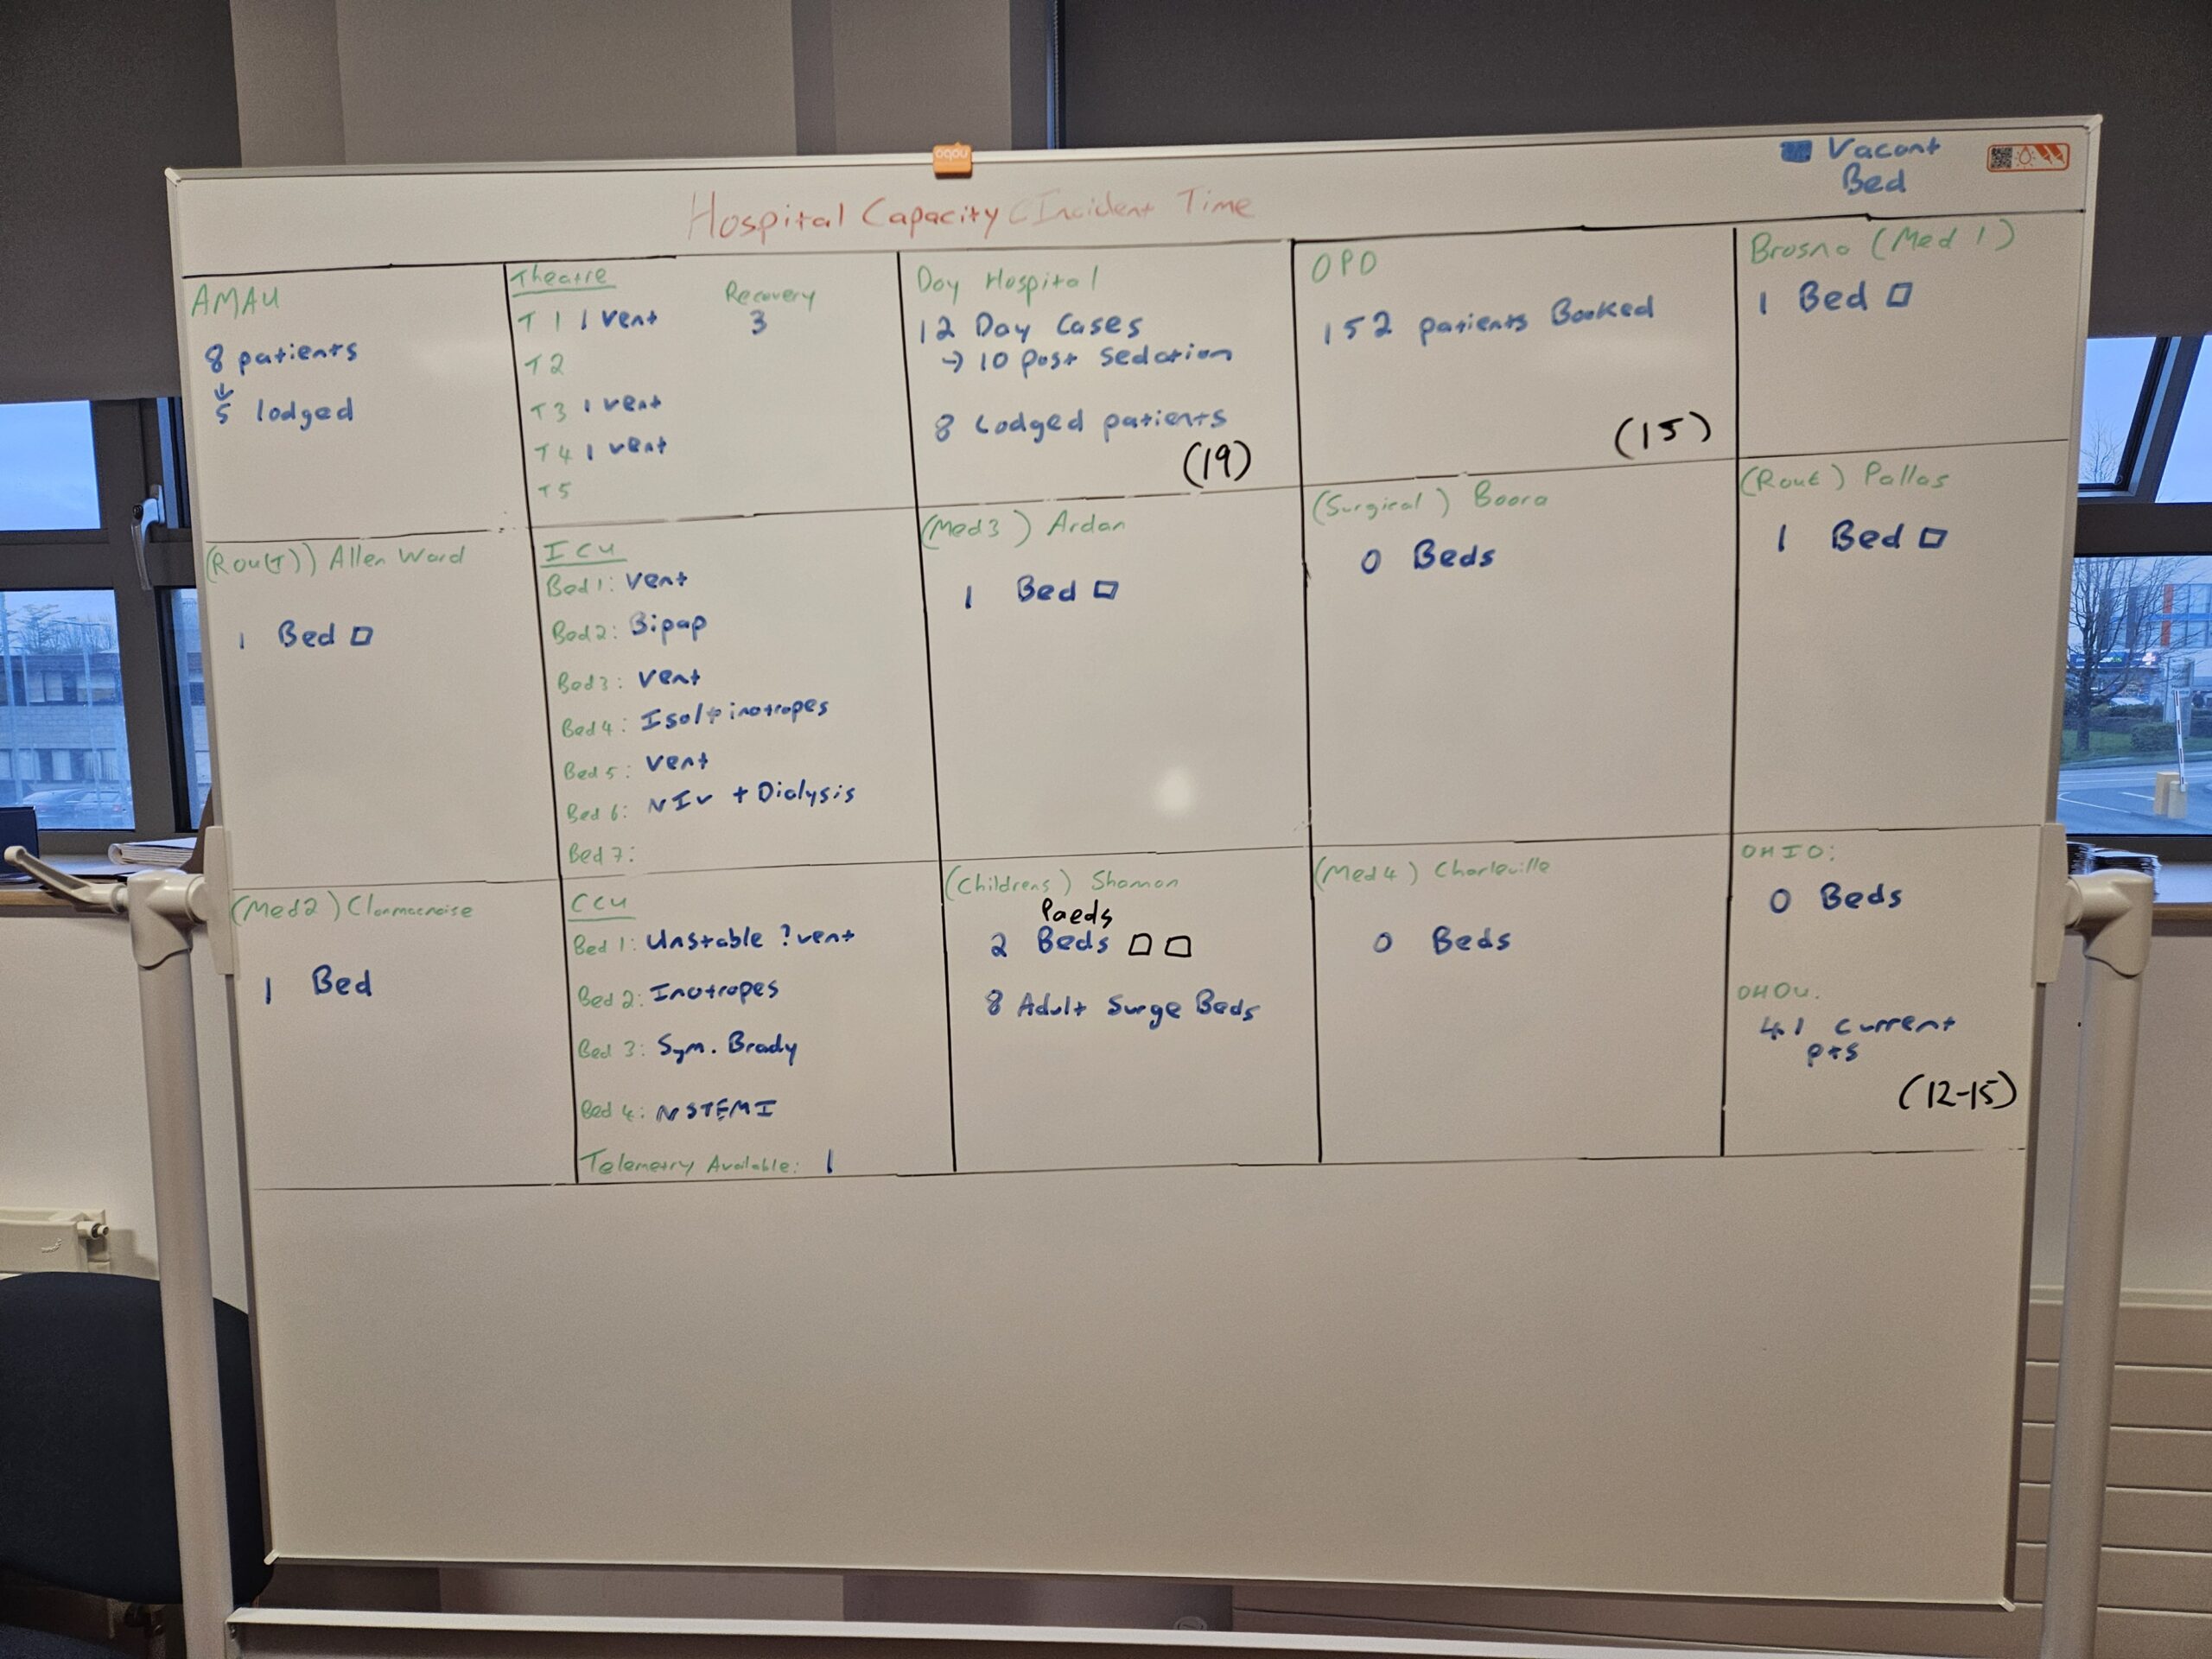 nobo
Vacant
Bed
Hospital Capacity (Incident Time
AMAU
8 patients
↓
5 lodged
Theatre
Recovery
T1 1 vent
3
T2
T3 1 vent
T4 1 vent
T5
Day Hospital
12 Day Cases
→ 10 post sedation
8 Lodged patients
(19)
OPD
152 patients Booked
(15)
Brosna (Med 1)
1 Bed
Allen Ward
1 Bed
ICU
Bed 1: Vent
Bed 2: Bipap
Bed 3: Vent
Bed 4: Isol + inotropes
Bed 5: Vent
Bed 6: NIV + Dialysis
Bed 7:
(Med3) Ardan
1 Bed
(Surgical) Boora
0 Beds
Pallas
1 Bed
(Med2) Clonmacnoise
1 Bed
CCU
Bed 1: Unstable ?vent
Bed 2: Inotropes
Bed 3: Sym. Brady
Bed 4: NSTEMI
Telemetry Available: 1
(Childrens) Shannon
Paeds
2 Beds
8 Adult Surge Beds
(Med4) Charleville
0 Beds
OHIO:
0 Beds
OHDU.
41 current
pts
(12-15)